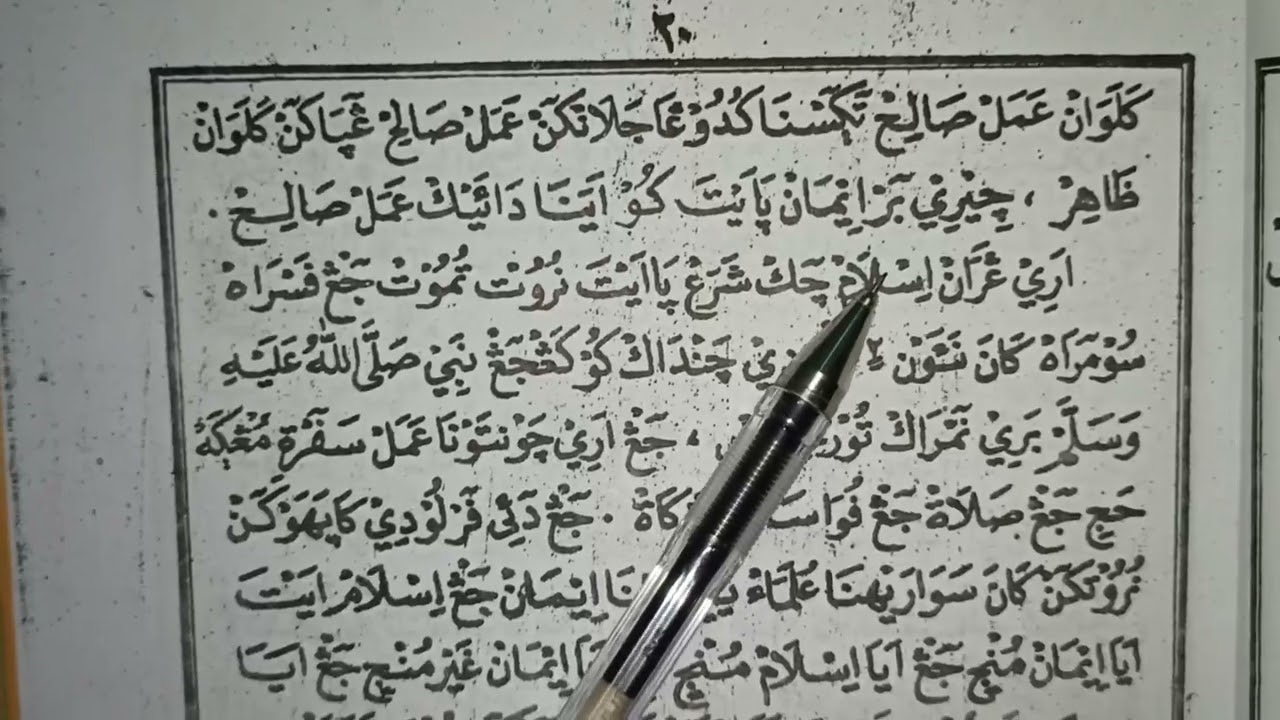 ٢٠
كَلَوَانْ عَمَلْ صَالِحْ تٓݢٓسْنَا كُدُوْ ڠَاجَلَانَكٓنْ عَمَلْ صَالِحْ ڠَڤَاكٓنْ كَلَوَانْ
ظَاهِرْ ، چِيْرِيْ بٓرْاِيْمَانْ ڤَايَيْتَ كُوْ اَيَنَا دَائَيْكْ عَمَلْ صَالِحْ .
اَرِيْ ڠَرَانْ اِسْلَامْ چٓكْ شَرَعْ ڤَااَيْتَ نُرُوْتْ تُمُوْتْ جٓڠْ فَسْرَاهْ
سُوْمٓرَاهْ كَانَ نَتَوَنْ ٢ چَنْدَاكْ كُوْ كَڠْجٓڠْ نَبِيْ صَلَّى اللهُ عَلَيْهِ
وَسَلَّمْ بَرِيْ نٓمْرَاكْ ، جٓڠْ اَرِيْ چَوْنتَوْنَا عَمَلْ سَفٓرْةِ مُڠْكَهْ
حَجِ جٓڠْ صَلَاةْ جٓڠْ فُوَاسَ . جٓڠْ دَئِى فٓرْلُوْدِيْ كَاڤَهَوْكٓنْ
نُرُوْتَكٓنْ كَانَ سَوَارَيْهِنَا عُلَمَاءْ اِيْمَانْ جٓڠْ اِسْلَامْ اَيْتَ
اَيَا اِيْمَانْ مُنْجِ جٓڠْ اَيَا اِسْلَامْ مُنْجِ اِيْمَانْ غَيْرْ مُنْجِ جٓڠْ اَيَا